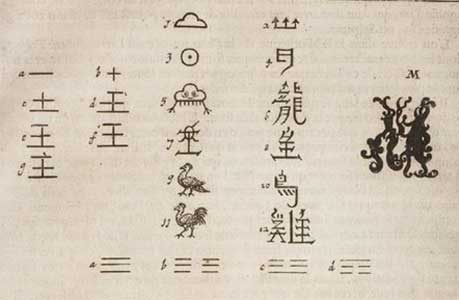 1 2
3 4
a 一 b 十 M
c 土 d 5 6 龍
e 王 f 王 7 8
g 主
9 10 鳥
11 12 雞
a ☰ b c d